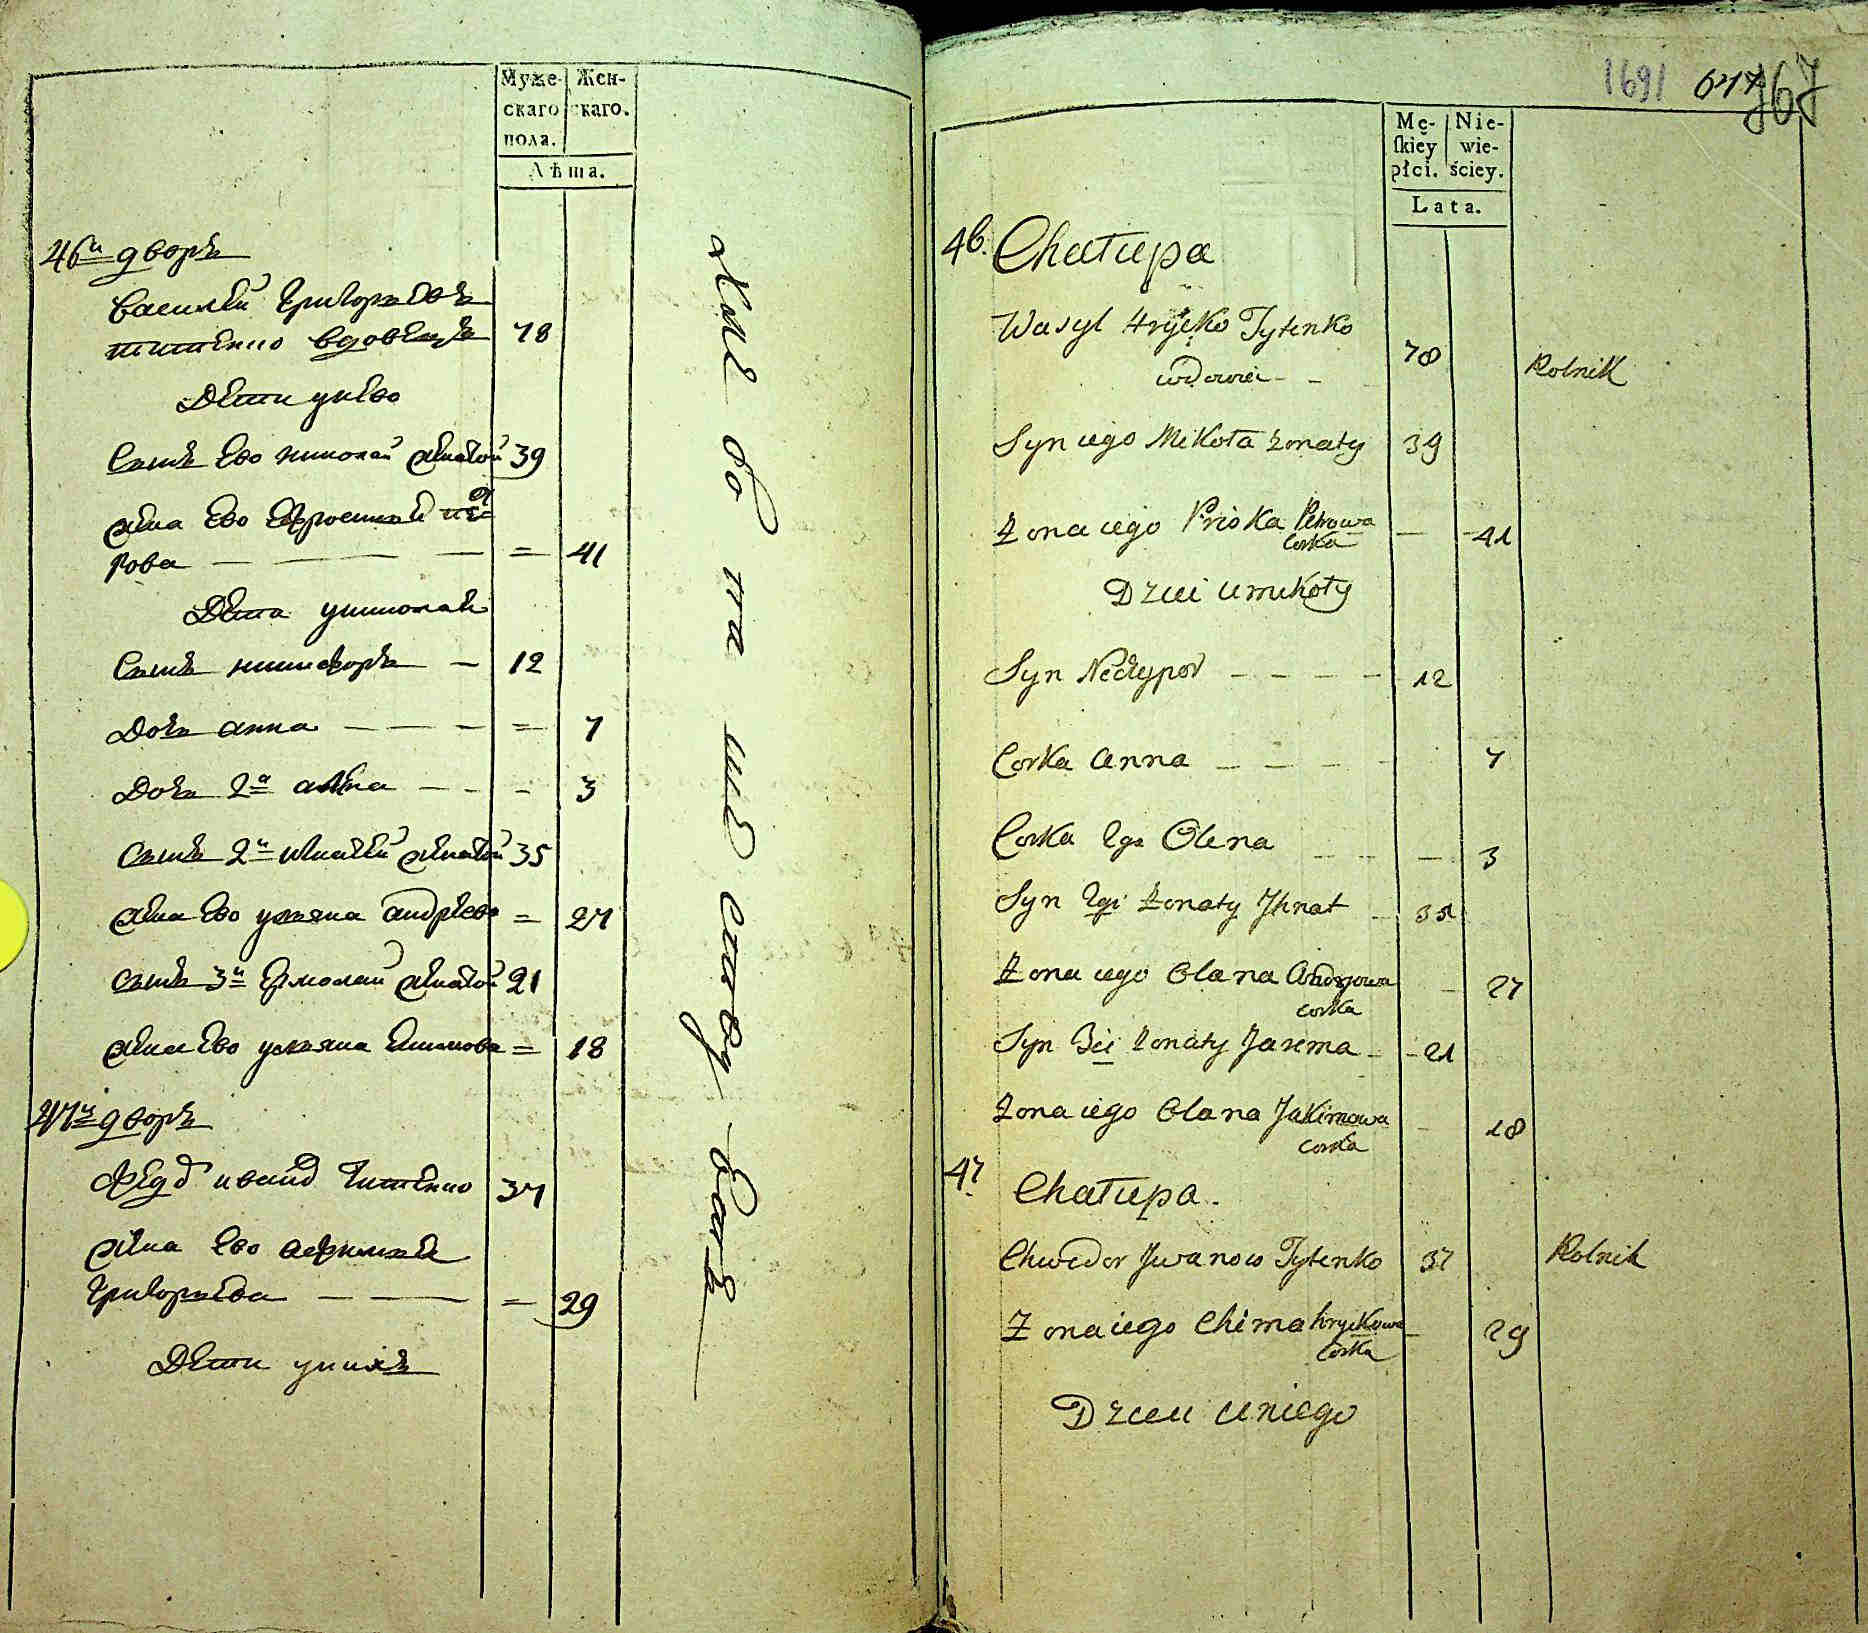 Муже-
скаго
пола.
Жен-
скаго.
Лѣта.
46й дворъ
Василий Григорьевъ
титенко вдовецъ 78
Дети унево
Сынъ Ево николай женатой 39
жена Ево Евросиния пет
рова — — — = 41
Дети униколая
Сынъ никифоръ — 12
Дочь анна — — — = 7
Дочь 2я алена — — - 3
Сынъ 2й игнатей женатой 35
жена Ево ульяна андреева = 27
Сынъ 3й Ермолай женатой 21
жена Ево ульяна Екимова = 18
47й дворъ
Федор иванов титенко 37
жена Ево афимия
Григорьева — — — = 29
Дети унихъ
1691 647 367
Mę-
ſkiey
płci.
Nie-
wie-
ściey.
Lata.
46. Chałupa
Wasyl Hryćko Tytenko
wdowiec - - 78 Rolnik
Syn iego Mikoła żonaty 39
Zona iego Prioka Petrowa
corka — 41
Dzieci u mikoły
Syn Neczypor - - - - 12
Corka Anna - - - - 7
Corka 2ga Olena - - - 3
Syn 2gi żonaty Ihnat - 35
Zona iego Olana Andryowa
corka - 27
Syn 3ci żonaty Jarema - - 21
Zona iego Olana Jakimowa
corka - 18
47. Chałupa.
Chwedor Jwanow Tytenko 37 Rolnik
Zona iego Chima hryćkowa
corka — 29
Dzieci u niego